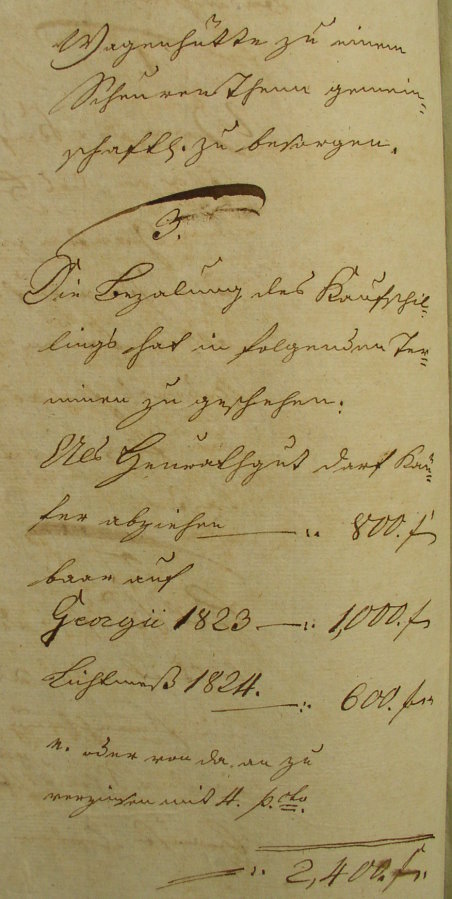 Wagenhütte zu einem
Scheuren Thenn gemein=
schaftl. zu besorgen.
3.
Die Bezalung des Kaufschil=
lings hat in folgenden Ter=
minen zu geschehen:
Als Heurathgut darf Käu=
fer abziehen — :. 800. f
baar auf
Georgii 1823 — :. 1,000. f
Lichtmeß 1824. — :. 600. f
u. oder von da an zu
verzinsen mit 4. p.Cto.
— :. 2,400. f.